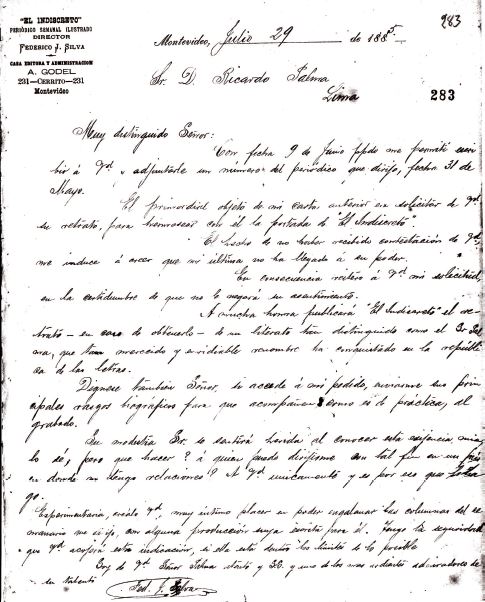 283
"EL INDISCRETO"
PERIÓDICO SEMANAL ILUSTRADO
DIRECTOR
FEDERICO J. SILVA
CASA EDITORA Y ADMINISTRACION
A. GODEL
231—CERRITO—231
Montevideo
Montevideo, Julio 29 de 1885
Sr. D. Ricardo Palma
Lima
283
Muy distinguido Señor:
Con fecha 9 de Junio ppdo me permití escri
bir á Vd. y adjuntarle un número del periódico que dirijo, fecha 31 de
Mayo.
El primordial objeto de mi carta anterior era solicitar de Vd.
su retrato, para hermosear con él la portada de "El Indiscreto"
El hecho de no haber recibido contestación de Vd.
me induce á creer que mi última no ha llegado á su poder.
En consecuencia reitero á Vd. mi solicitud,
en la certidumbre de que no le negará su asentimiento.
A mucha honra publicará "El Indiscreto" el re-
trato – en caso de obtenerlo – de un literato tan distinguido como el Sr. Pal
ma, que tan merecido y envidiable renombre ha conquistado en la repúbli
ca de las letras.
Dígnese también Señor, si accede á mi pedido, enviarme sus prin
cipales rasgos biográficos para que acompañen como es de práctica, al
grabado.
Su modestia Sr. se sentirá herida al conocer esta exijencia mia
lo sé; pero que hacer? á quien puedo dirijirme con tal fin en un país
en donde no tengo relaciones? A Vd unicamente y es por eso que lo ha
go.
Experimentaria, créalo Vd., muy íntimo placer en poder engalanar las columnas del se
manario con alguna producción suya escrita para él. Tengo la seguridad
que Vd. acojerá esta indicación, si ella está dentro los límites de lo posible
Soy de Vd. Señor Palma atento y SS. y uno de los mas ardientes admiradores de
su talento
Fed. J. Silva